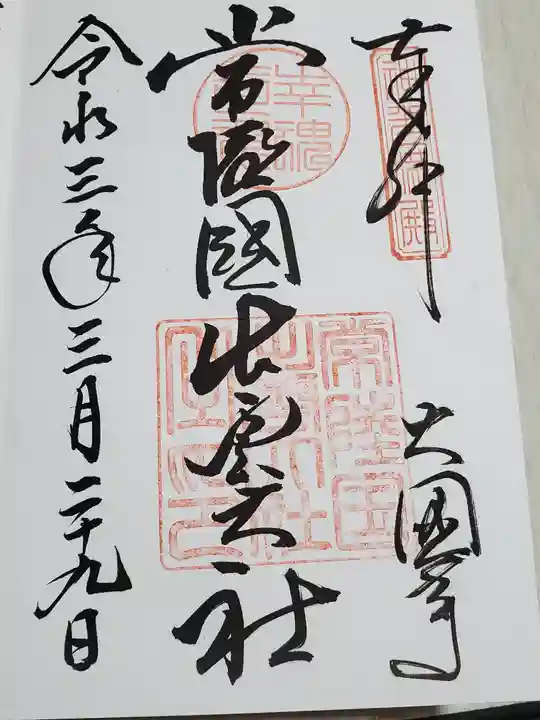 奉拝
大國尊
常陸國出雲大社
令和三年三月二十九日
幸魂
常陸国
出雲大社